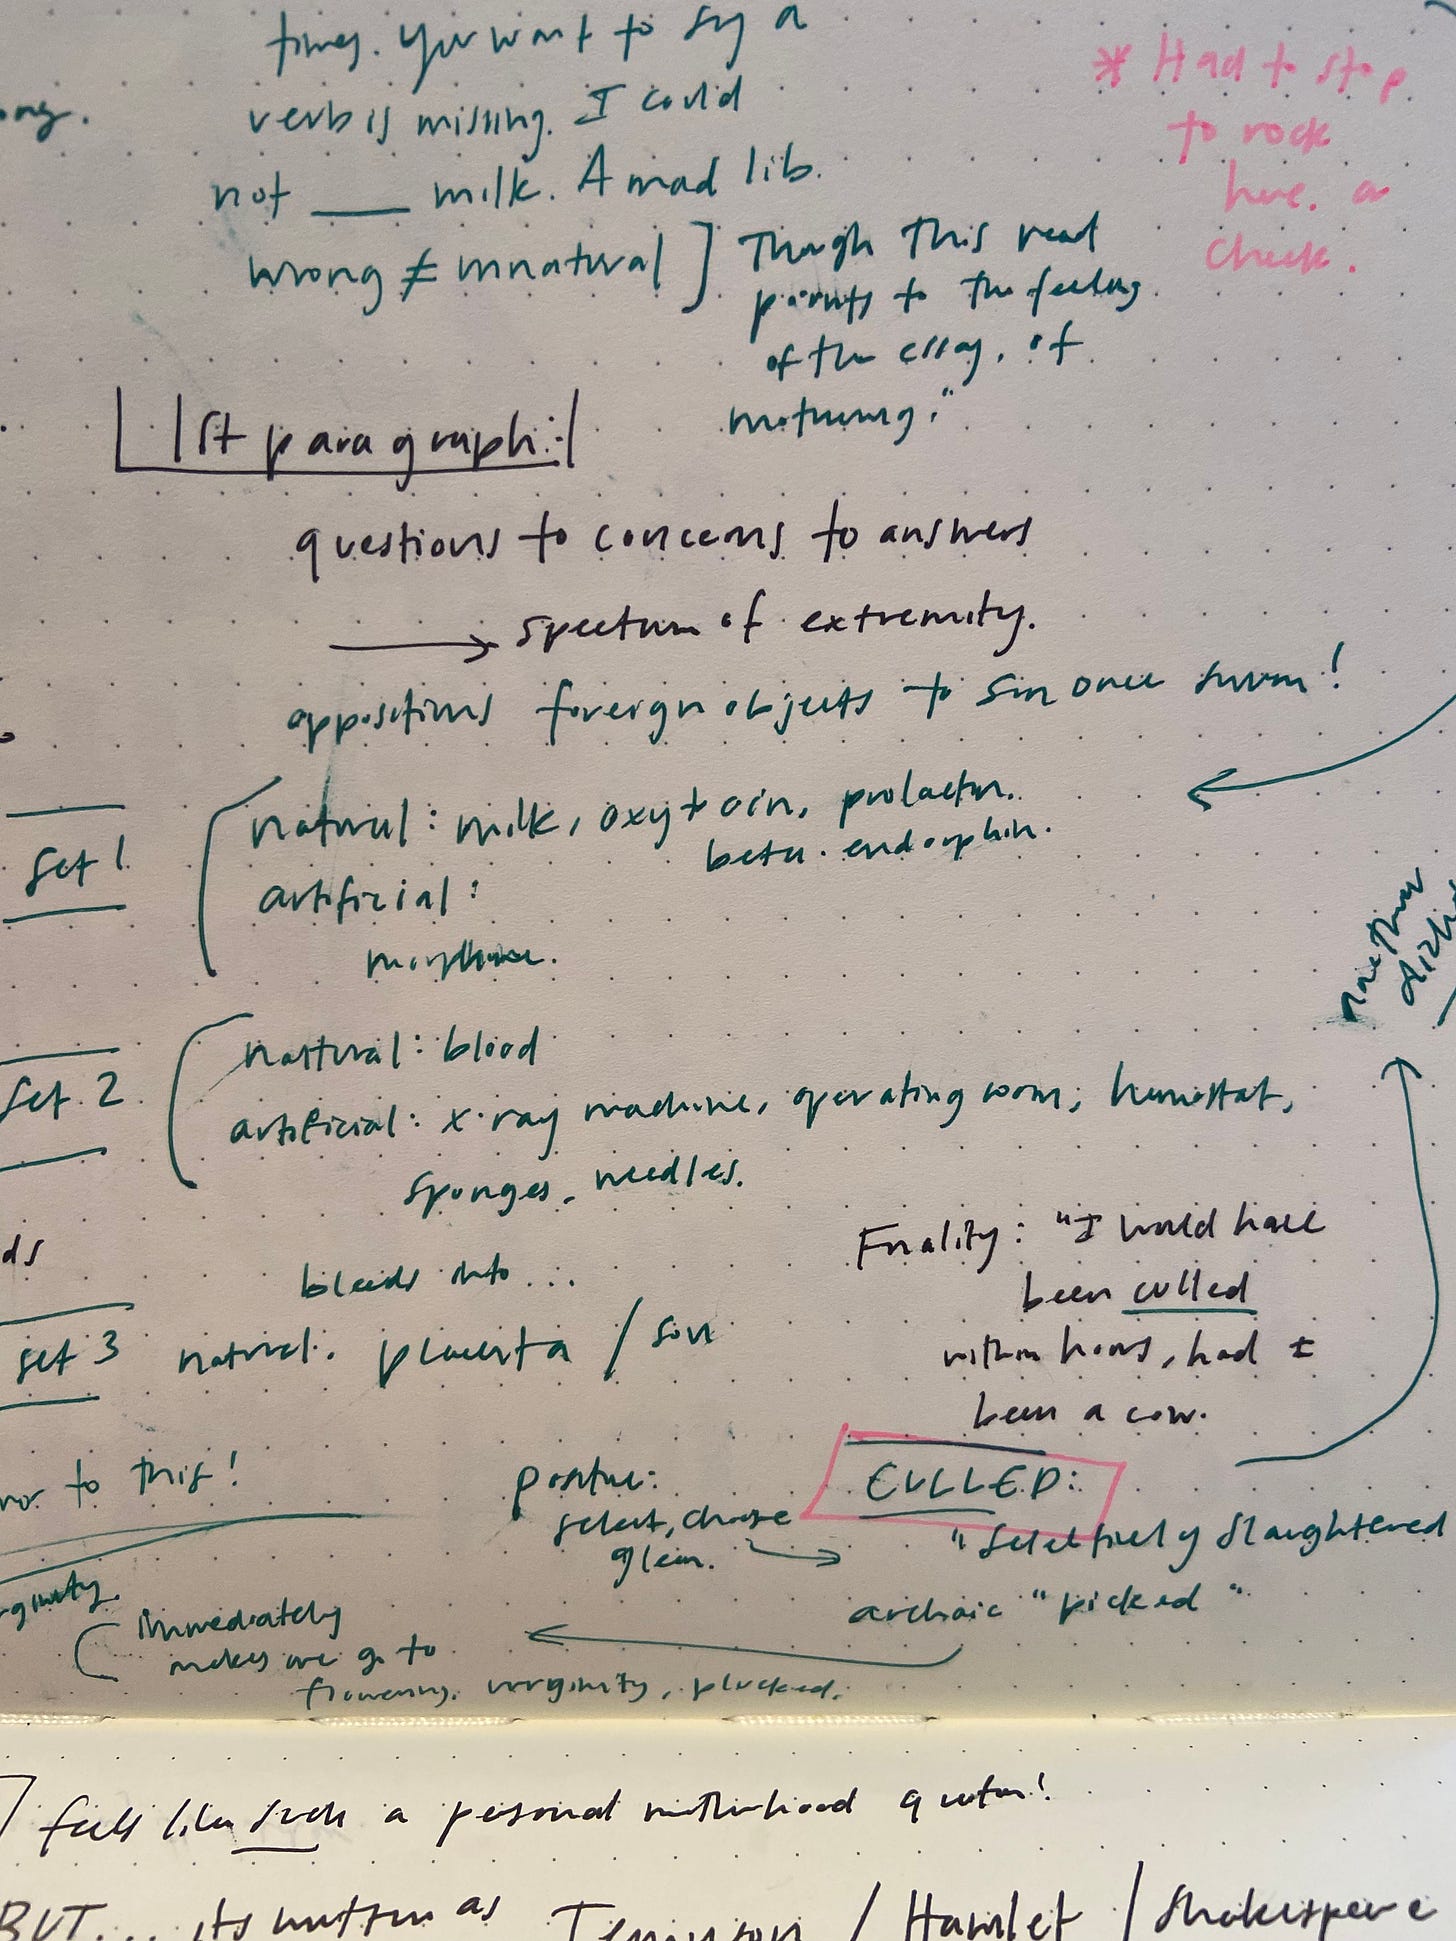 times. You want to say a
verb is missing. I could
not ___ milk. A mad lib.
wrong ≠ unnatural ] Though this read
points to the feeling
of the essay, of
mothering."
* Had to stop
to rock
here. a
check.
ong.
1st paragraph:
questions to concerns to answers
→ spectrum of extremity.
oppositions foreign objects to sin once swam!
set 1
natural: milk, oxytocin, prolactin.
beta-endorphin.
artificial:
morphine.
set 2
natural: blood
artificial: x-ray machine, operating room, hemostat,
sponges, needles.
ds
bleeds into...
set 3 natural: placenta / son
Finality: "I would have
been culled
within hours, had I
been a cow.
to this!
positive:
select, choose
glean.
CULLED:
"selectively slaughtered
archaic "picked"
immediately
makes me go to
flowering, virginity, plucked.
feels like such a personal motherhood
BUT... its written as Tennyson / Hamlet / Shakespeare